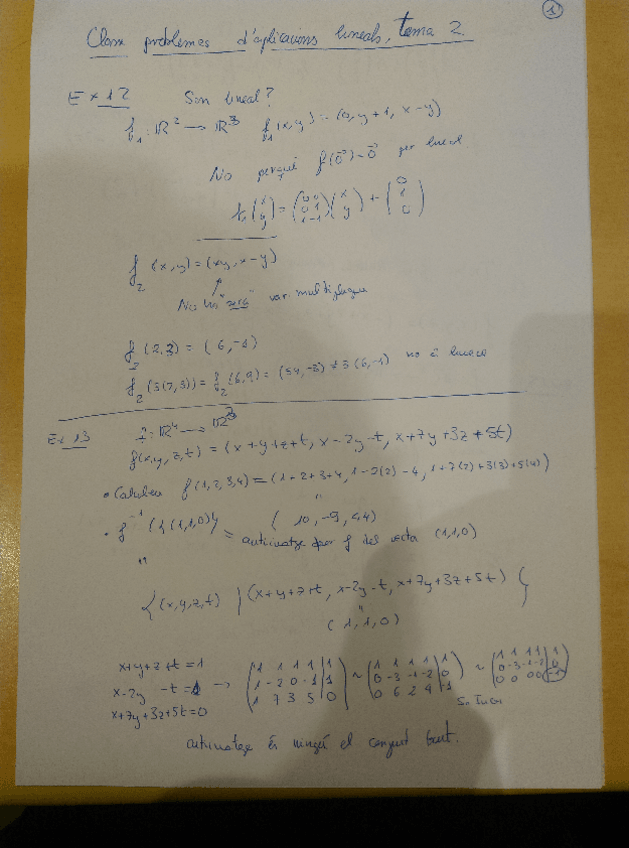 1
Classe problemes d'aplicacions lineals, tema 2
Ex 12 Son lineal?
f₁: ℝ² → ℝ³ f₁(x,y) = (0, y+1, x-y)
No perquè f(0⃗)=0⃗ per lineal
f₁(x y) = (0 0 / 0 1 / 1 -1)(x y) + (0 1 0)
f₂(x,y) = (xy, x-y)
No ha "será" var multiplicada
f₂(2,3) = (6,-1)
f₂(3(2,3)) = f₂(6,9) = (54,-3) ≠ 3(6,-1) no és lineal
Ex 13 f: ℝ⁴ → ℝ³
f(x,y,z,t) = (x+y+z+t, x-2y-t, x+7y+3z+5t)
• Calculeu f(1,2,3,4) = (1+2+3+4, 1-2(2)-4, 1+7(2)+3(3)+5(4))
"
(10, -9, 44)
• f⁻¹({(1,1,0)}) = antiimatge per f del vector (1,1,0)
"
{(x,y,z,t) | (x+y+z+t, x-2y-t, x+7y+3z+5t) }
"
(1,1,0)
x+y+z+t=1
x-2y -t=1 → (1 1 1 1 | 1 / 1 -2 0 -1 | 1 / 1 7 3 5 | 0) ~ (1 1 1 1 | 1 / 0 -3 -1 -2 | 0 / 0 6 2 4 | -1) ~ (1 1 1 1 | 1 / 0 -3 -1 -2 | 0 / 0 0 0 0 | -1)
x+7y+3z+5t=0
antiimatge és ningú el conjunt buit.